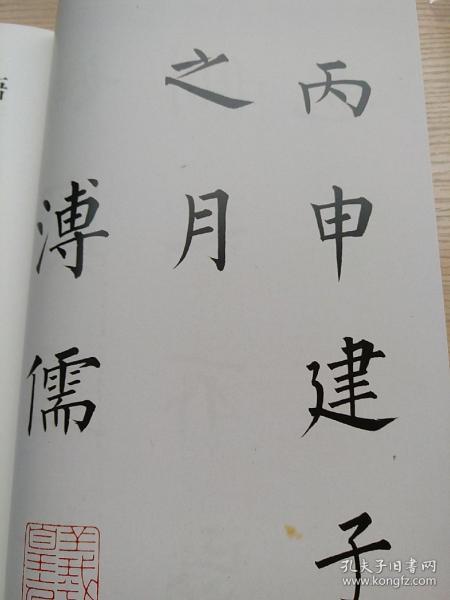 丙申建子
之月
溥儒
孔夫子旧书网
www.kongfz.com